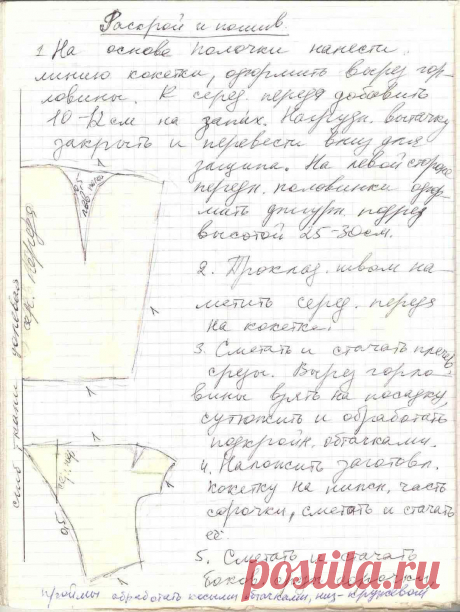 Раскрой и пошив.
1. На основе полочки нанести
линию кокетки, оформить вырез гор-
ловины. К серед. переда добавить
10-12 см на запах. Нагрудн. вытачку
закрыть и перевести вниз для
защипа. На левой стороне
передн. половинки офор-
мить фигурн. подрез
высотой 25-30 см.
2. Проклад. швом на-
метить серед. переда
на кокетке.
3. Сметать и стачать плечев.
срезы. Вырез горло-
вины взять на посадку,
сутюжить и обработать
подкройн. обтачками.
4. Наложить заготовл.
кокетку на нижн. часть
сорочки, сметать и стачать
её.
5. Сметать и стачать
боков.
проймы обработать косыми обтачками, низ - кружевом
сгиб ткани долевая
сер. переда
0,5
1
1
1
1
1
1
1
0,5
posila.ru